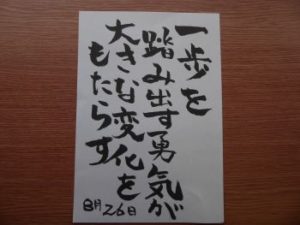 一歩を
踏み出す勇気が
大きな変化を
もたらす
8月26日